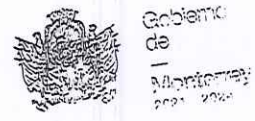 Gobierno
de
Monterrey
2021 - 2024